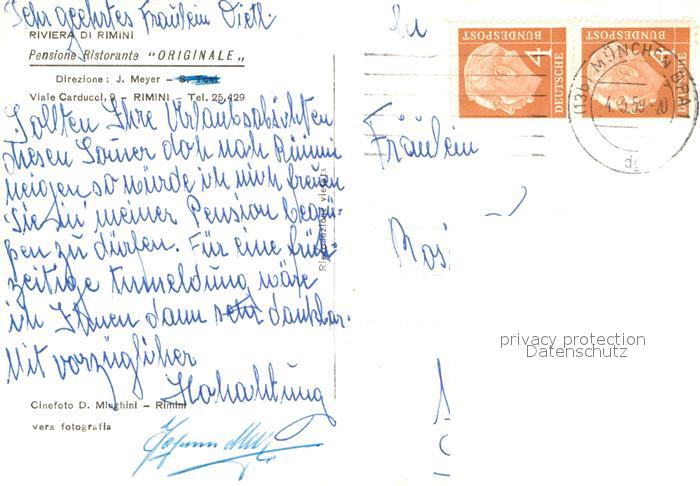 Sehr geehrtes Fräulein Dietl
RIVIERA DI RIMINI
Pensione Ristorante "ORIGINALE"
Direzione: J. Meyer - S. Tosi
Viale Carducci, 9 - RIMINI - Tel. 25.429
Sollten Ihre Urlaubsabsichten
diesen Somer doch nach Rimini
neigen so würde ich mich freuen
Sie in meiner Pension begrü-
ßen zu dürfen. Für eine früh-
zeitige Anmeldung wäre
ich Ihnen dann sehr dankbar.
Mit vorzüglicher
Hohachtung
Cinefoto D. Minghini - Rimini
vera fotografia
Riproduzione vietata
An
Fräulein
4
DEUTSCHE
BUNDESPOST
DEUTSCHE
BUNDESPOST
(13b) MÜNCHEN
4.3.59
privacy protection
Datenschutz